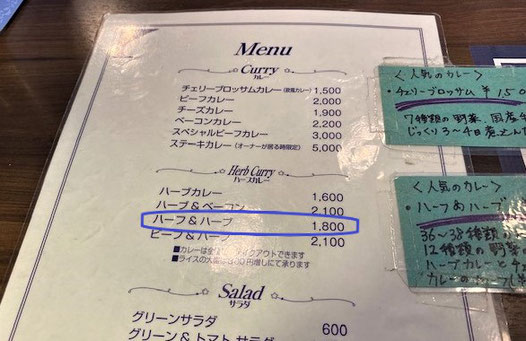 Menu
Curry
カレー
チェリーブロッサムカレー(欧風カレー) 1,500
ビーフカレー 2,000
チーズカレー 1,900
ベーコンカレー 2,200
スペシャルビーフカレー 3,000
ステーキカレー(オーナーが居る時限定) 5,000
Herb Curry
ハーブカレー
ハーブカレー 1,600
ハーブ&ベーコン 2,100
ハーフ&ハーブ 1,800
ビーフ&ハーブ 2,100
■カレーは全 テイクアウトできます
■ライスの大盛は 00円増しにて承ります
Salad
サラダ
グリーンサラダ 600
グリーン&トマトサラダ
<人気のカレー>
・チェリーブロッサム ¥150
7種類の野菜、国産
じっくり3〜4日煮込ん
<人気のカレー>
・ハーフ&ハーブ
36〜38種類
12種類の野菜の
ハーブカレーとチ
カレーの